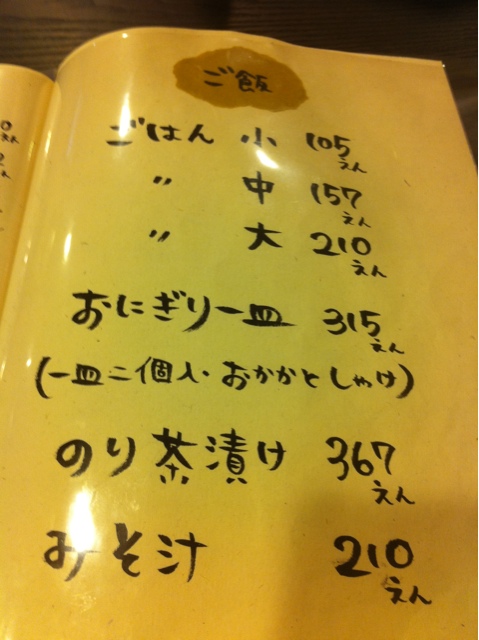 ご飯
ごはん 小 105えん
〃 中 157えん
〃 大 210えん
おにぎり一皿 315えん
(一皿二個入・おかかとしゃけ)
のり茶漬け 367えん
みそ汁 210えん